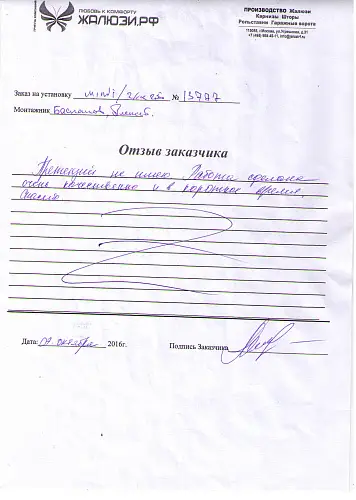 ЛЮБОВЬ К КОМФОРТУ
ЖАЛЮЗИ.РФ
ПРОИЗВОДСТВО Жалюзи
Карнизы Шторы
Рольставни Гаражные ворота
Заказ на установку № 13777
Монтажник
Отзыв заказчика
Претензий не имею. Работа сделана
очень качественно и в короткое время.
Спасибо
Дата: октября 2016г.
Подпись Заказчика